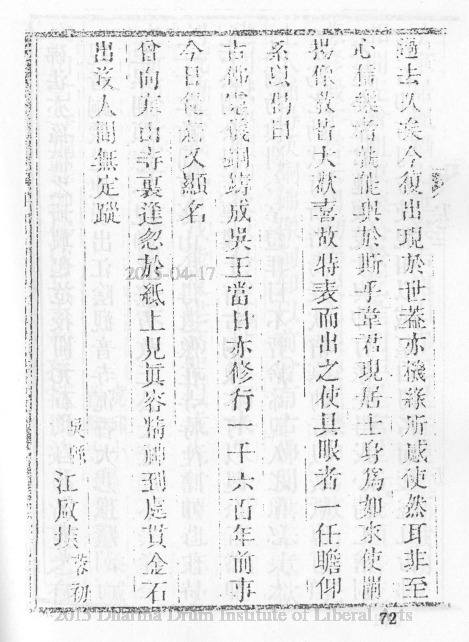 過去久矣今復出現於世葢亦機緣所感使然耳非至
心信奉者孰能與於斯乎韋君現居士身爲如來使闡
揚像教皆大歡喜故特表而出之使具眼者一任瞻仰
系以偈曰
古佛虔誠銅鑄成吳王當日亦修行一千六百年前事
今日從新又顯名
曾向寒山寺裏逢忽於紙上見眞容精神到處貫金石
出沒人間無定蹤
吳縣 江
2015-04-17
72
2015 Dharma Drum Institute of Liberal Arts